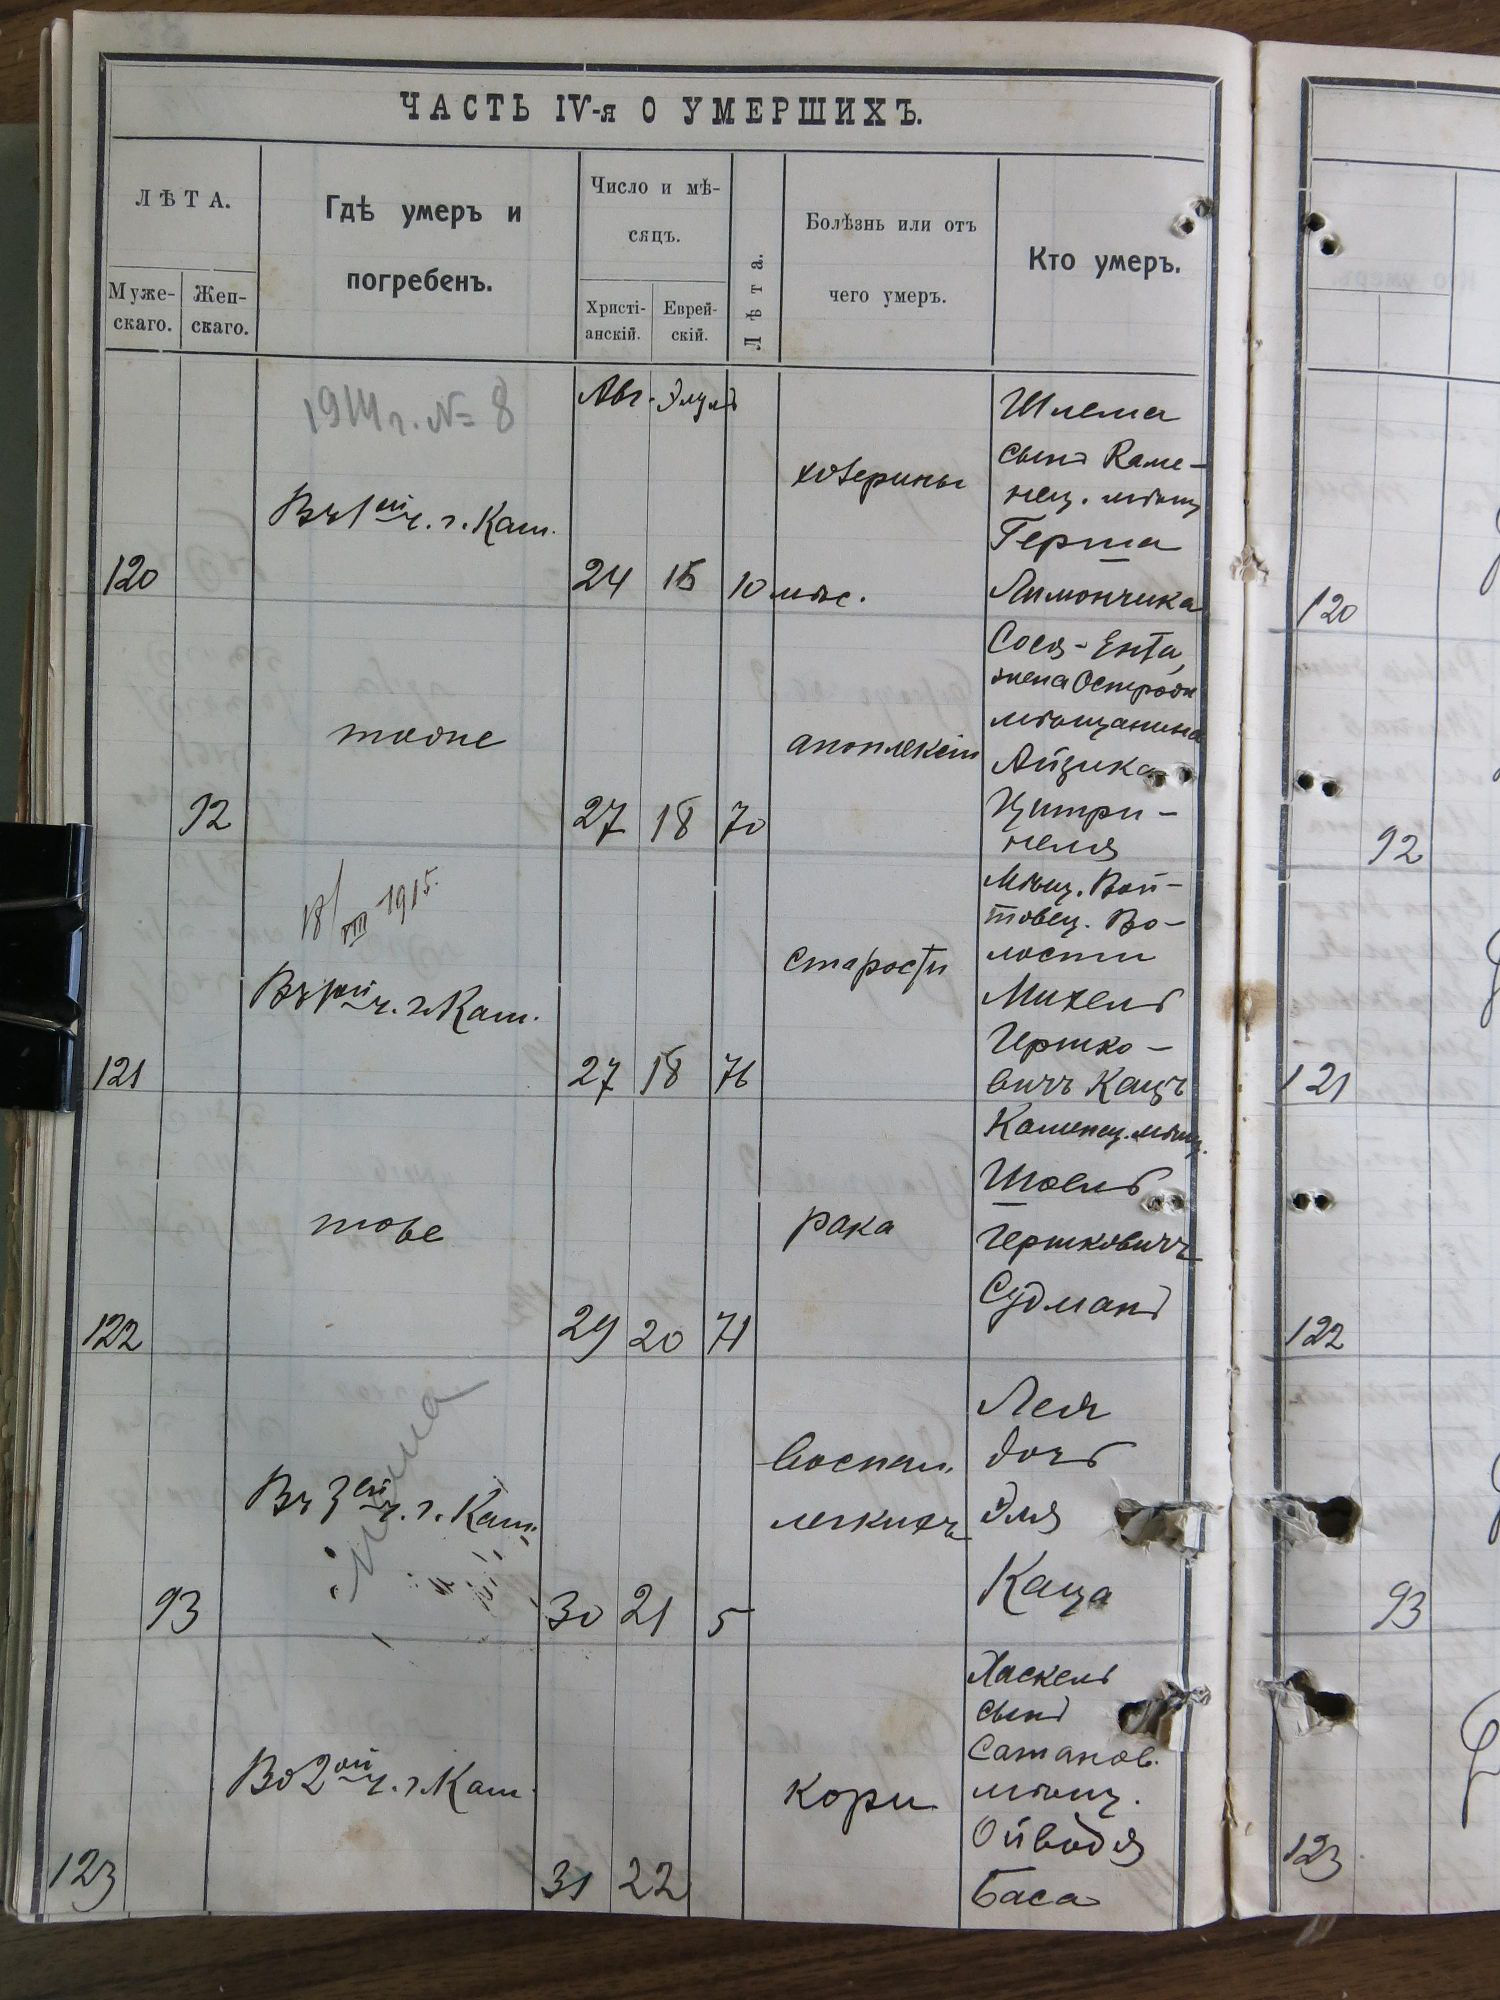 ЧАСТЬ IV-я О УМЕРШИХЪ.
ЛѢТА.
Муже-
скаго.
Жен-
скаго.
Гдѣ умеръ и
погребенъ.
Число и мѣ-
сяцъ.
Христі-
анскій.
Еврей-
скій.
Лѣта.
Болѣзнь или отъ
чего умеръ.
Кто умеръ.
1914 г. № 8
Авг. Элулъ
Въ 1ой ч. г. Кам.
120
24 15 10 мѣс.
холерины
Шлема
сынъ Каме-
нец. мѣщ
Герша
Лимончика
120
тоже
92
27 18 70
апоплексіи
Сося-Ента,
жена
мѣщанина
Айзика
Цитри-
неля
92
18/VIII 1915.
Въ 1ой ч. г. Кам.
121
27 18 76
старости
Мѣщ. Вой-
товец. Во-
лости
Михель
Гершко-
вичъ Кацъ
121
тоже
122
29 20 71
рака
Каменец. мѣщ.
Шоель
Гершковичъ
Судманъ
122
Въ 3ей ч. г. Кам.
93
30 21 5
воспал.
легкихъ
Лея
дочь
Эля
Каца
93
Во 2ой ч. г. Кам.
123
31 22
кори
Хаскель
сынъ
Сатанов.
мѣщ.
Ойводя
Баса
123